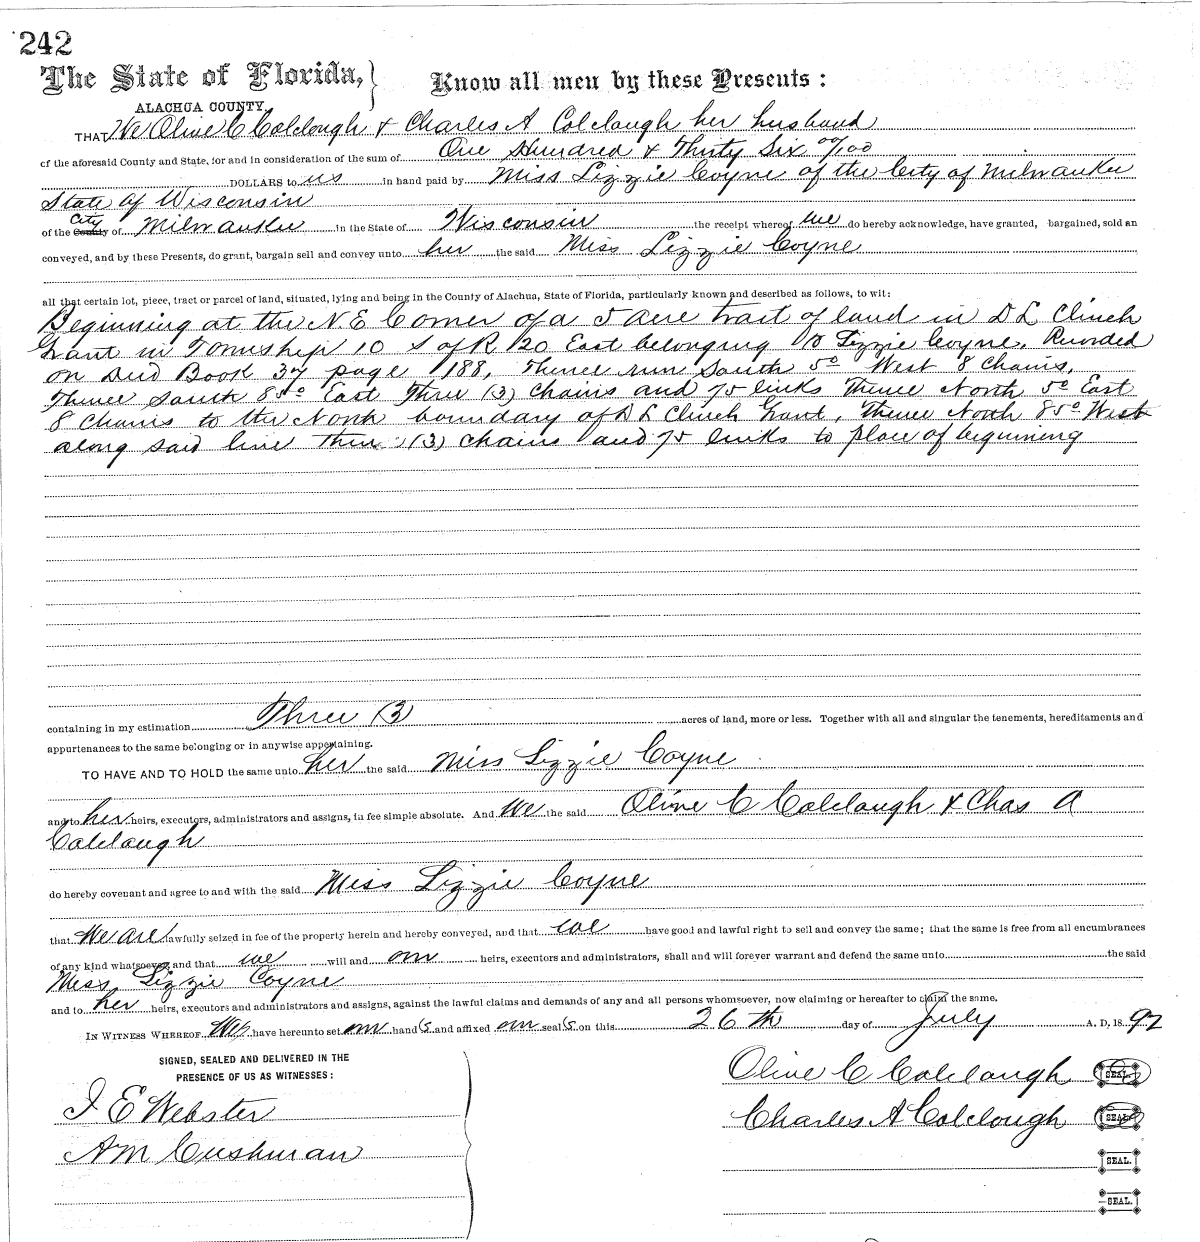 242
The State of Florida, Know all men by these Presents :
ALACHUA COUNTY.
THAT We Olive C Colclough & Charles A Colclough her husband
of the aforesaid County and State, for and in consideration of the sum of One Hundred & Thirty Six 00/100
DOLLARS to us in hand paid by Miss Lizzie Coyne of the City of Milwaukee
State of Wisconsin
of the County City of Milwaukee in the State of Wisconsin the receipt whereof we do hereby acknowledge, have granted, bargained, sold an
conveyed, and by these Presents, do grant, bargain sell and convey unto her the said Miss Lizzie Coyne
all that certain lot, piece, tract or parcel of land, situated, lying and being in the County of Alachua, State of Florida, particularly known and described as follows, to wit:
Beginning at the N.E Corner of a 5 acre tract of land in D L Clinch
Grant in Township 10 S of R 20 East belonging to Lizzie Coyne, Recorded
on Deed Book 37 page 188, Thence run South 5° West 8 Chains,
Thence South 85° East Three (3) Chains and 75 links Thence North 5° East
8 Chains to the North boundary of D L Clinch Grant, Thence North 85° West
along said line Three (3) Chains and 75 links to place of beginning
containing in my estimation Three (3) acres of land, more or less. Together with all and singular the tenements, hereditaments and
appurtenances to the same belonging or in anywise appertaining.
TO HAVE AND TO HOLD the same unto her the said Miss Lizzie Coyne
and to her heirs, executors, administrators and assigns, in fee simple absolute. And We the said Olive C Colclough & Chas A
Colclough
do hereby covenant and agree to and with the said Miss Lizzie Coyne
that We are lawfully seized in fee of the property herein and hereby conveyed, and that we have good and lawful right to sell and convey the same; that the same is free from all encumbrances
of any kind whatsoever, and that we will and our heirs, executors and administrators, shall and will forever warrant and defend the same unto the said
Miss Lizzie Coyne
and to her heirs, executors and administrators and assigns, against the lawful claims and demands of any and all persons whomsoever, now claiming or hereafter to claim the same.
IN WITNESS WHEREOF We have hereunto set our hand(s and affixed our seal(s on this 26th day of July A. D. 18 92
SIGNED, SEALED AND DELIVERED IN THE
PRESENCE OF US AS WITNESSES :
Olive C Colclough SEAL.
I E Webster
Charles A Colclough SEAL.
A M Cushman
SEAL.
SEAL.